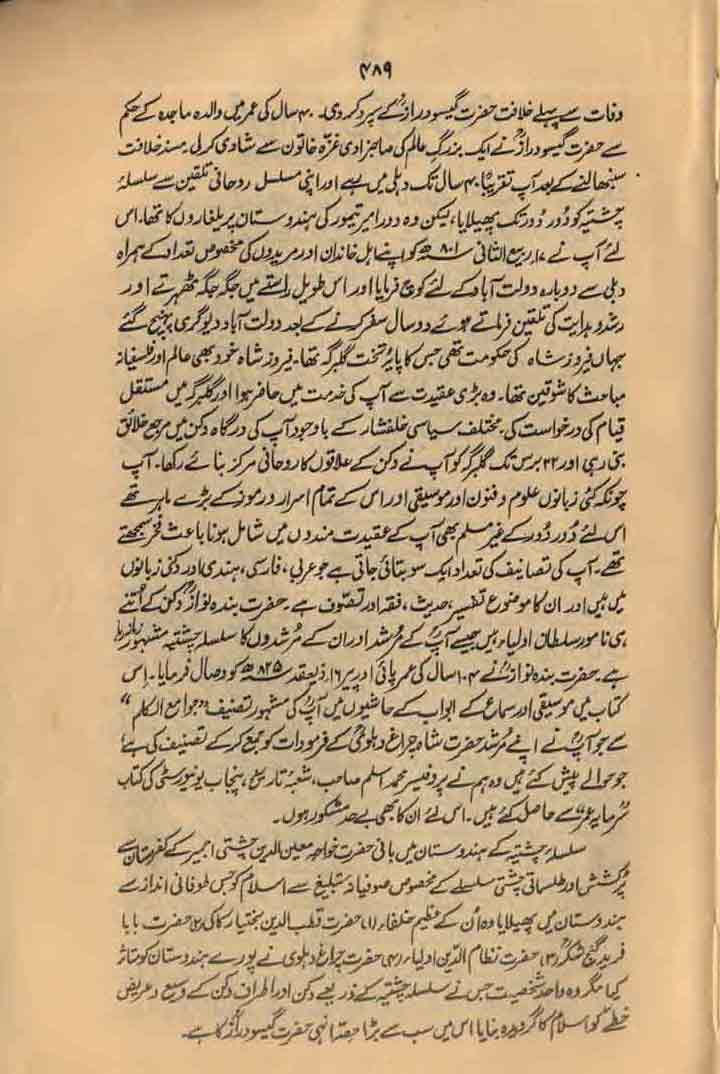 ۴۸۹
وفات سے پہلے خلافت حضرت گیسودرازؒ کے سپرد کردی۔ ۴۰ سال کی عمر میں والدہ ماجدہ کے حکم
سے حضرت گیسودرازؒ نے ایک بزرگ عالم کی صاجزادی غزّہ خاتون سے شادی کرلی۔ مسندِ خلافت
سنبھالنے کے بعد آپ تقریباً ۴۰ سال تک دہلی میں رہے اور اپنی مسلسل روحانی تلقین سے سلسلۂ
چشتیہ کو دُور دُور تک پھیلایا، لیکن وہ دور امیر تیمور کی ہندوستان پر یلغاروں کا تھا۔ اس
لئے آپ نے ۱۷ ربیع الثانی ۸۰۱ھ کو اپنے اہل خاندان اور مریدوں کی مخصوص تعداد کے ہمراہ
دہلی سے دوبارہ دولت آباد کے لئے کوچ فرمایا اور اس طویل راستے میں جگہ جگہ ٹھہرتے اور
رشد و ہدایت کی تلقین فرماتے ہوئے دو سال سفر کرنے کے بعد دولت آباد دیوگری پہنچ گئے
جہاں فیروز شاہ کی حکومت تھی جس کا پایۂ تخت گلبرگہ تھا۔ فیروز شاہ خود بھی عالم اور فلسفیانہ
مباحث کا شوقین تھا۔ وہ بڑی عقیدت سے آپ کی خدمت میں حاضر ہوا اور گلبرگہ میں مستقل
قیام کی درخواست کی۔ مختلف سیاسی خلفشار کے باوجود آپ کی درگاہ دکن میں مرجع خلائق
بنی رہی اور ۲۲ برس تک گلبرگہ کو آپ نے دکن کے علاقوں کا روحانی مرکز بنائے رکھا۔ آپ
چونکہ کئی زبانوں علوم و فنون اور موسیقی اور اس کے تمام اسرار و رموز کے بڑے ماہر تھے
اس لئے دُور دُور کے غیر مسلم بھی آپ کے عقیدت مندوں میں شامل ہونا باعث فخر سمجھتے
تھے۔ آپ کی تصانیف کی تعداد ایک سو بتائی جاتی ہے جو عربی، فارسی، ہندی اور دکنی زبانوں
میں ہیں اور ان کا موضوع تفسیر، حدیث، فقہ اور تصوّف ہے۔ حضرت بندہ نوازؒ دکن کے اُتنے
ہی نامور سلطان اولیاء ہیں جیسے آپؒ کے مُرشد اور ان کے مُرشدوں کا سلسلہ چشتیہ مشہور
ہے۔ حضرت بندہ نوازؒ نے ۱۰۴ سال کی عمر پائی اور پیر ۱۶ ذیعقد ۸۲۵ھ کو وصال فرمایا۔ اِس
کتاب میں موسیقی اور سماع کے ابواب کے حاشیوں میں آپؒ کی مشہور تصنیف "جوامع الکلم"
سے جو آپؒ نے اپنے مُرشد حضرت شاہ چراغ دہلویؒ کے فرمودات کو جمع کرکے تصنیف کی ہے
جو حوالے پیش کئے ہیں وہ ہم نے پروفیسر محمد اسلم صاحب، شعبۂ تاریخ، پنجاب یونیورسٹی کی کتاب
سُرمایہ عُمر سے حاصل کئے ہیں۔ اس لئے ان کا بھی بے حد مشکور ہوں۔
سلسلۂ چشتیہ کے ہندوستان میں بانی حضرت خواجہ معین الدین چشتی اجمیر کے کفرستان سے
پُرکشش اور طلسماتی چشتی سلسلے کے مخصوص صوفیانہ تبلیغ سے اسلام کو جس طوفانی انداز سے
ہندوستان میں پھیلایا وہ اُن کے عظیم خلفاء (۱) حضرت قطب الدین بختیار کاکی (۲) حضرت بابا
فرید گنج شکرؒ (۳) حضرت نظام الدین اولیاء (۴) حضرت چراغ دہلوی نے پورے ہندوستان کو متاثر
کیا مگر وہ واحد شخصیت جس نے سلسلہ چشتیہ کے ذریعے دکن اور اطراف دکن کے وسیع و عریض
خطّے کو اسلام کا گرویدہ بنایا اس میں سب سے بڑا حصّہ انہی حضرت گیسودرازؒ کا ہے۔